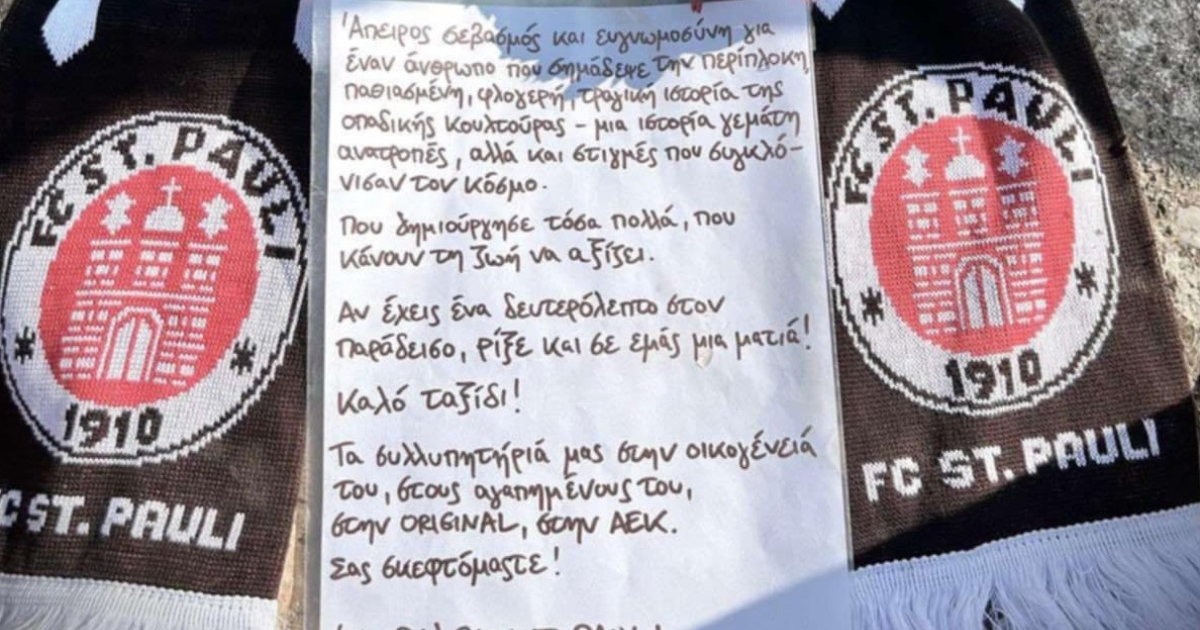 FC ST. PAULI
1910
C ST. PAULI
Άπειρος σεβασμός και ευγνωμοσύνη για
έναν άνθρωπο που σημάδεψε την περίπλοκη,
παθιασμένη, φλογερή, τραγική ιστορία της
οπαδικής κουλτούρας – μια ιστορία γεμάτη
ανατροπές, αλλά και στιγμές που συγκλό-
νισαν τον κόσμο.
Που δημιούργησε τόσα πολλά, που
κάνουν τη ζωή να αξίζει.
Αν έχεις ένα δευτερόλεπτο στον
παράδεισο, ρίξε και σε εμάς μια ματιά!
Καλό ταξίδι!
Τα συλλυπητήριά μας στην οικογένειά
του, στους αγαπημένους του,
στην ORIGINAL, στην ΑΕΚ.
Σας σκεφτόμαστε!
FC ST. PAULI
1910
FC ST. PAULI